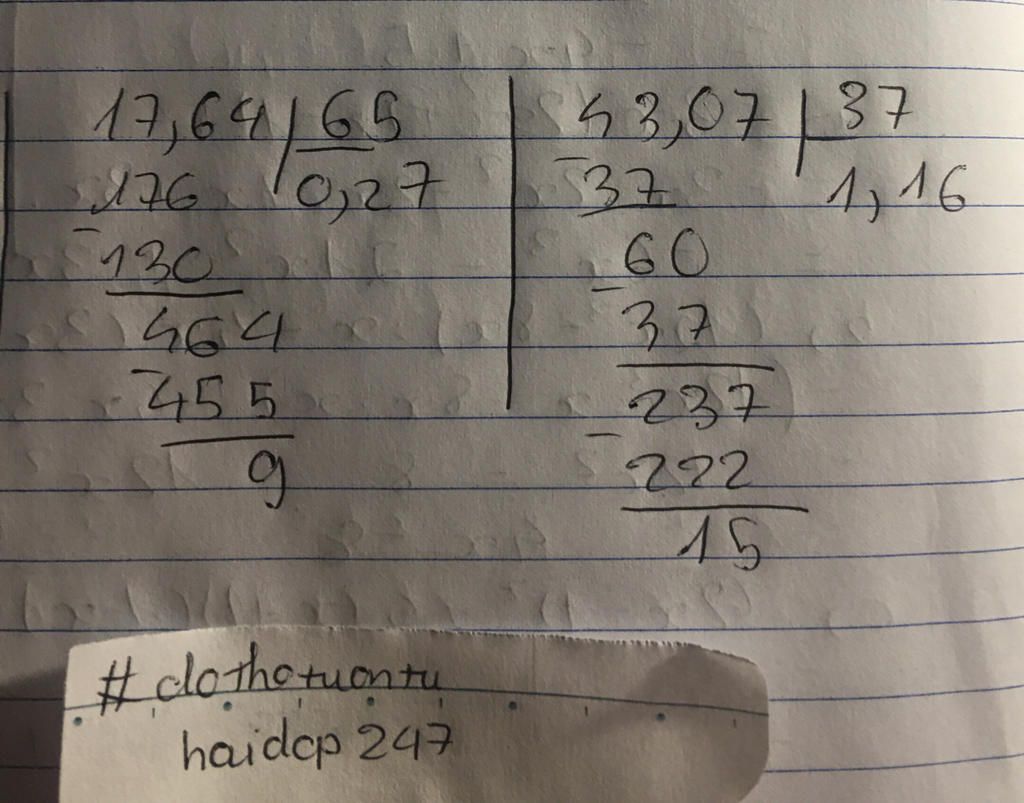 17,64 65
176 0,27
- 130
464
- 455
9
43,07 37
- 37 1,16
60
- 37
237
- 222
15
# dothotuontu
haidcp 247